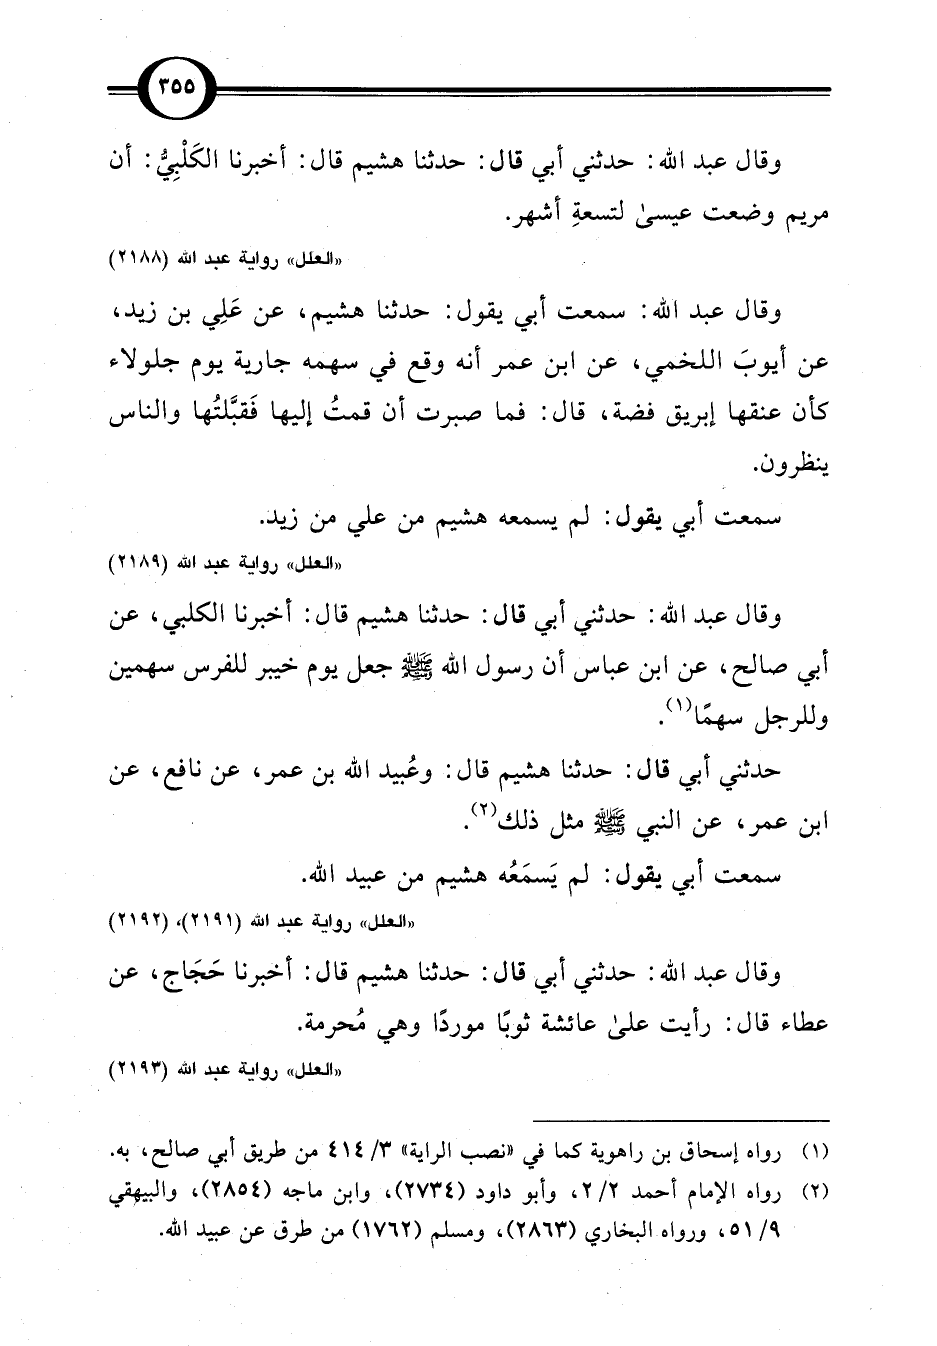 ٣٥٥
وقال عبد الله: حدثني أبي قال: حدثنا هشيم قال: أخبرنا الكَلْبِيُّ: أن
مريم وضعت عيسىٰ لتسعةِ أشهر.
«العلل» رواية عبد الله (٢١٨٨)
وقال عبد الله: سمعت أبي يقول: حدثنا هشيم، عن عَلِي بن زيد،
عن أيوبَ اللخمي، عن ابن عمر أنه وقع في سهمه جارية يوم جلولاء
كأن عنقها إبريق فضة، قال: فما صبرت أن قمتُ إليها فَقبَّلتُها والناس
ينظرون.
سمعت أبي يقول: لم يسمعه هشيم من علي من زيد.
«العلل» رواية عبد الله (٢١٨٩)
وقال عبد الله: حدثني أبي قال: حدثنا هشيم قال: أخبرنا الكلبي، عن
أبي صالح، عن ابن عباس أن رسول الله ﷺ جعل يوم خيبر للفرس سهمين
وللرجل سهمًا(١).
حدثني أبي قال: حدثنا هشيم قال: وعُبيد الله بن عمر، عن نافع، عن
ابن عمر، عن النبي ﷺ مثل ذلك(٢).
سمعت أبي يقول: لم يَسمَعُه هشيم من عبيد الله.
«العلل» رواية عبد الله (٢١٩١)، (٢١٩٢)
وقال عبد الله: حدثني أبي قال: حدثنا هشيم قال: أخبرنا حَجَاج، عن
عطاء قال: رأيت علىٰ عائشة ثوبًا موردًا وهي مُحرمة.
«العلل» رواية عبد الله (٢١٩٣)
(١) رواه إسحاق بن راهوية كما في «نصب الراية» ٣/ ٤١٤ من طريق أبي صالح، به.
(٢) رواه الإمام أحمد ٢/ ٢، وأبو داود (٢٧٣٤)، وابن ماجه (٢٨٥٤)، والبيهقي
٩/ ٥١، ورواه البخاري (٢٨٦٣)، ومسلم (١٧٦٢) من طرق عن عبيد الله.